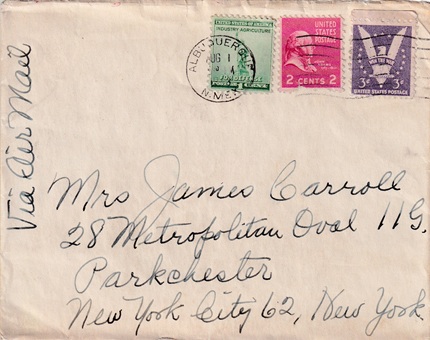 UNITED STATES OF AMERICA
INDUSTRY AGRICULTURE
FOR DEFENSE
1 CENT
UNITED
STATES
POSTAGE
2 CENTS 2
WIN THE WAR
3¢ 3¢
UNITED STATES POSTAGE
ALBUQUERQUE
AUG 1
N.MEX.
Via Air Mail
Mrs James Carroll
28 Metropolitan Oval 11G.
Parkchester
New York City 62, New York.